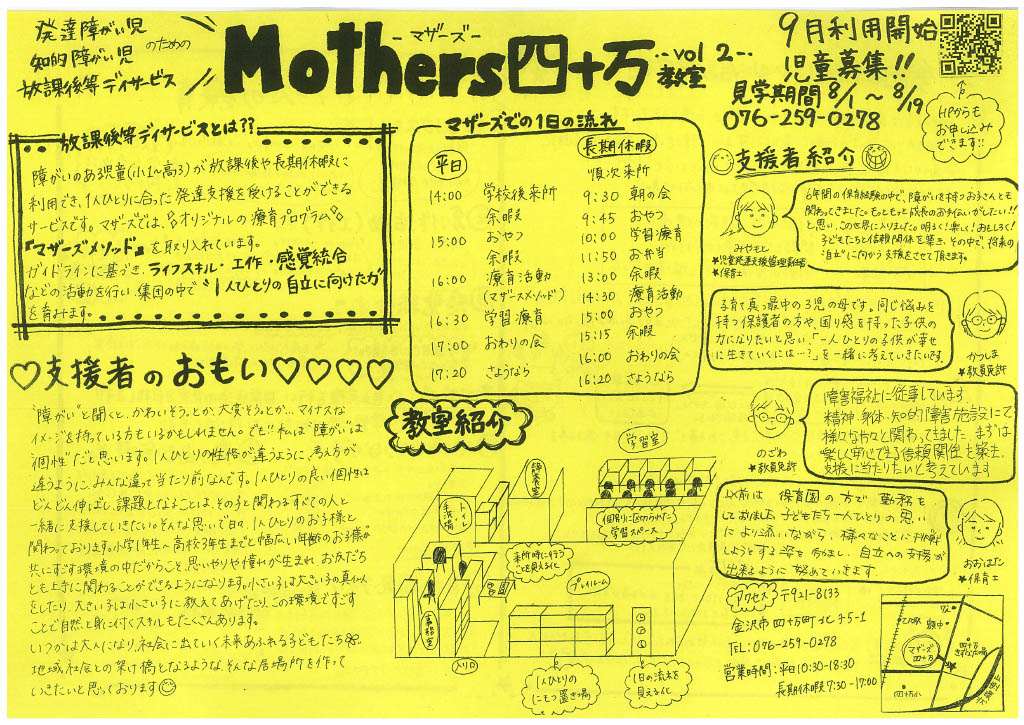 発達障がい児
知的障がい児
のための
放課後等デイサービス
-マザーズ-
Mothers四十万
vol 2
教室
9月利用開始
児童募集!!
見学期間 8/1 ～ 8/19
076-259-0278
HPからも
お申し込み
できます!!
放課後等デイサービスとは??
障がいのある児童(小1～高3)が放課後や長期休暇に
利用でき、1人ひとりに合った発達支援を受けることができる
サービスです。マザーズでは、オリジナルの療育プログラム
『マザーズメソッド』を取り入れています。
ガイドラインに基づき、ライフスキル・工作・感覚統合
などの活動を行い、集団の中で"1人ひとりの自立に向けた力"
を育みます。
マザーズでの1日の流れ
平日
14:00 学校後来所
余暇
15:00 おやつ
余暇
16:00 療育活動
(マザーズメソッド)
16:30 学習療育
17:00 おわりの会
17:20 さようなら
長期休暇
順次来所
9:30 朝の会
9:45 おやつ
10:00 学習療育
11:50 お弁当
13:00 余暇
14:30 療育活動
15:00 おやつ
15:15 余暇
16:00 おわりの会
16:20 さようなら
支援者紹介
6年間の保育経験の中で、障がいを持つお子さんとも
関わってきました。もっともっと成長のお手伝いがしたい!!
と思い、この世界に入りました。明るく!楽しく!おもしろく!
子どもたちと信頼関係を築き、その中で、将来の
"自立"に向かう支援をさせて頂きます。
みやもと
★児童発達支援管理責任者
★保育士
子育て真っ最中の3児の母です。同じ悩みを
持つ保護者の方や、困り感を持った子供の
力になりたいと思い、「一人ひとりの子供が幸せ
に生きていくには…?」を一緒に考えていきたいです。
かつしま
★教員免許
障害福祉に従事しています。
精神・身体・知的障害施設にて
様々な方々と関わってきました。まずは
楽しく安心できる信頼関係を築き、
支援に当たりたいと考えています
のざわ
★教員免許
以前は 保育園の方で 勤務を
しておりました。子どもたち一人ひとりの思い
により添いながら、様々なことに挑戦
しようとする姿を励まし、自立への支援が
出来るように 努めていきます
おおはた
★保育士
♡支援者のおもい♡♡♡♡
"障がい"と聞くと、かわいそうとか、大変そうとか… マイナスな
イメージを持っている方もいるかもしれません。でも!! 私は"障がい"は
"個性"だと思います。1人ひとりの性格が違うように、考え方が
違うように、みんな違って当たり前なんです。1人ひとりの良い個性は
どんどん伸ばし、課題となることは、その子と関わるすべての人と
一緒に支援していきたい。そんな思いで日々、1人ひとりのお子様と
関わっております。小学1年生～高校3年生までと幅広い年齢のお子様が
共にすごす環境の中だからこそ、思いやりや憧れが生まれ、お友だち
とも上手に関わることができるようになります。小さい子は大きい子の真似
をしたり、大きい子は小さい子に教えてあげたり、この環境ですごす
ことで自然と身に付くスキルもたくさんあります。
いつかは大人になり、社会に出ていく未来あふれる子どもたち
地域、社会との架け橋となるような、そんな居場所を作って
いきたいと思っております
教室紹介
学習室
相談室
トイレ
手洗場
個別に区切られた
学習スペース
来所時に行う
ことを見える化
玄関
プレイルーム
事務室
入り口
1人ひとりの
にもつ置き場
1日の流れを
見える化
アクセス
〒921-8133
金沢市四十万町北チ5-1
TEL:076-259-0278
営業時間:平日10:30-18:30
長期休暇9:30-17:00
マザーズ
四十万
四十万小
山側環状